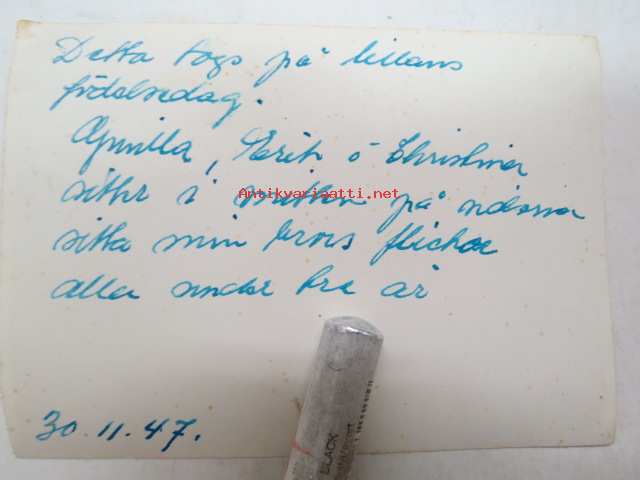 Detta togs på lillans
födelsedag.
Gunilla, Erik o Christina
sitter i mitten på
sitta min brors flickor
alla under bra år
Antikvariaatti.net
30.11.47.
BLACK